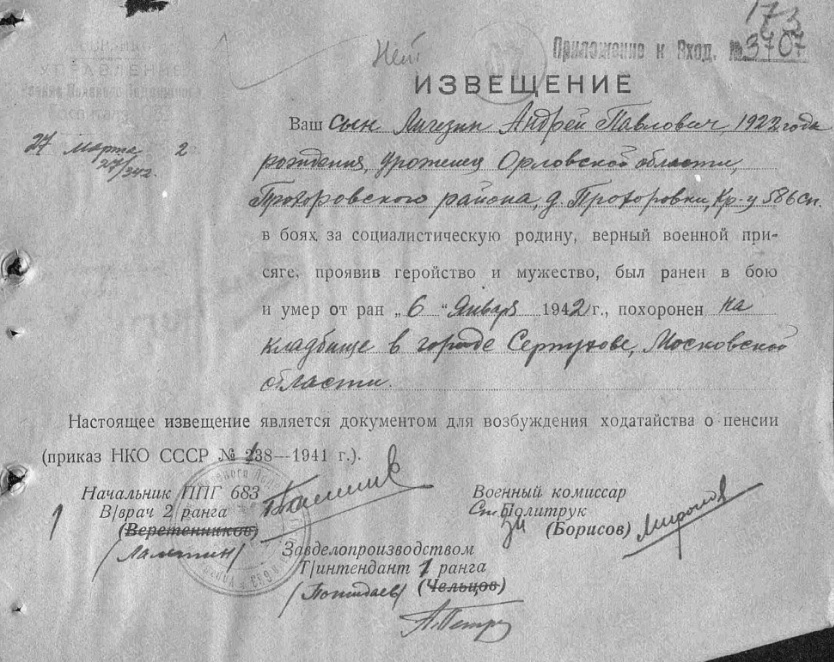 173
Приложение к Вход. № 3707
Нет
УПРАВЛЕНИЕ
ИЗВЕЩЕНИЕ
27 марта 2
27/342.
Ваш сын Андрей Павлович, 1922 года
рождения, уроженец Орловской области,
Прохоровского района, д. Прохоровки, Кр-ц 586 сп.
в боях за социалистическую родину, верный военной при-
сяге, проявив геройство и мужество, был ранен в бою
и умер от ран „6 " Января 1942 г., похоронен на
кладбище в городе Серпухове, Московской
области.
Настоящее извещение является документом для возбуждения ходатайства о пенсии
(приказ НКО СССР № 138—1941 г.).
Начальник ППГ 683
В/врач 2 ранга
(Веретенников)
Военный комиссар
Ст. Политрук
(Борисов)
Завделопроизводством
Т/интендант 1 ранга
(Чельцов)